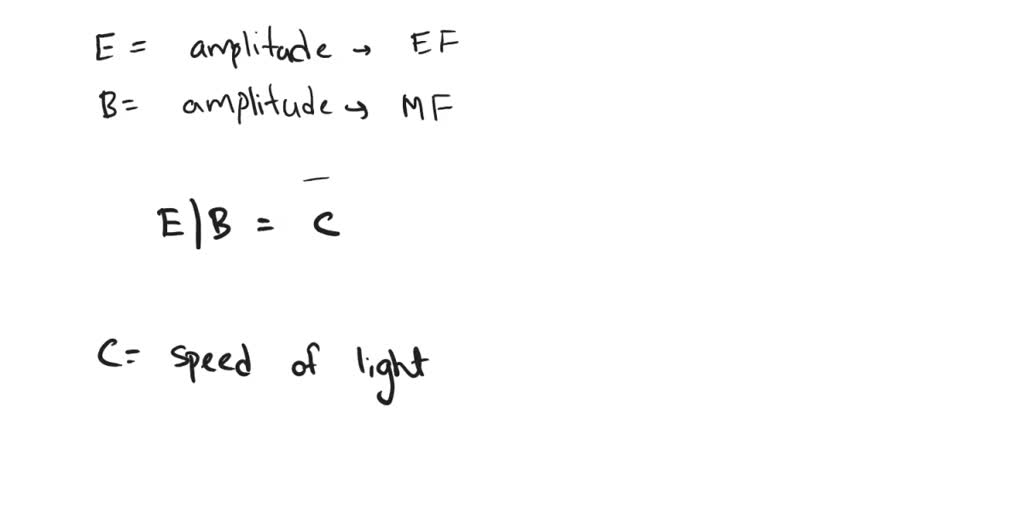 E = amplitude → EF
B= amplitude → MF
E|B = c
C= speed of light